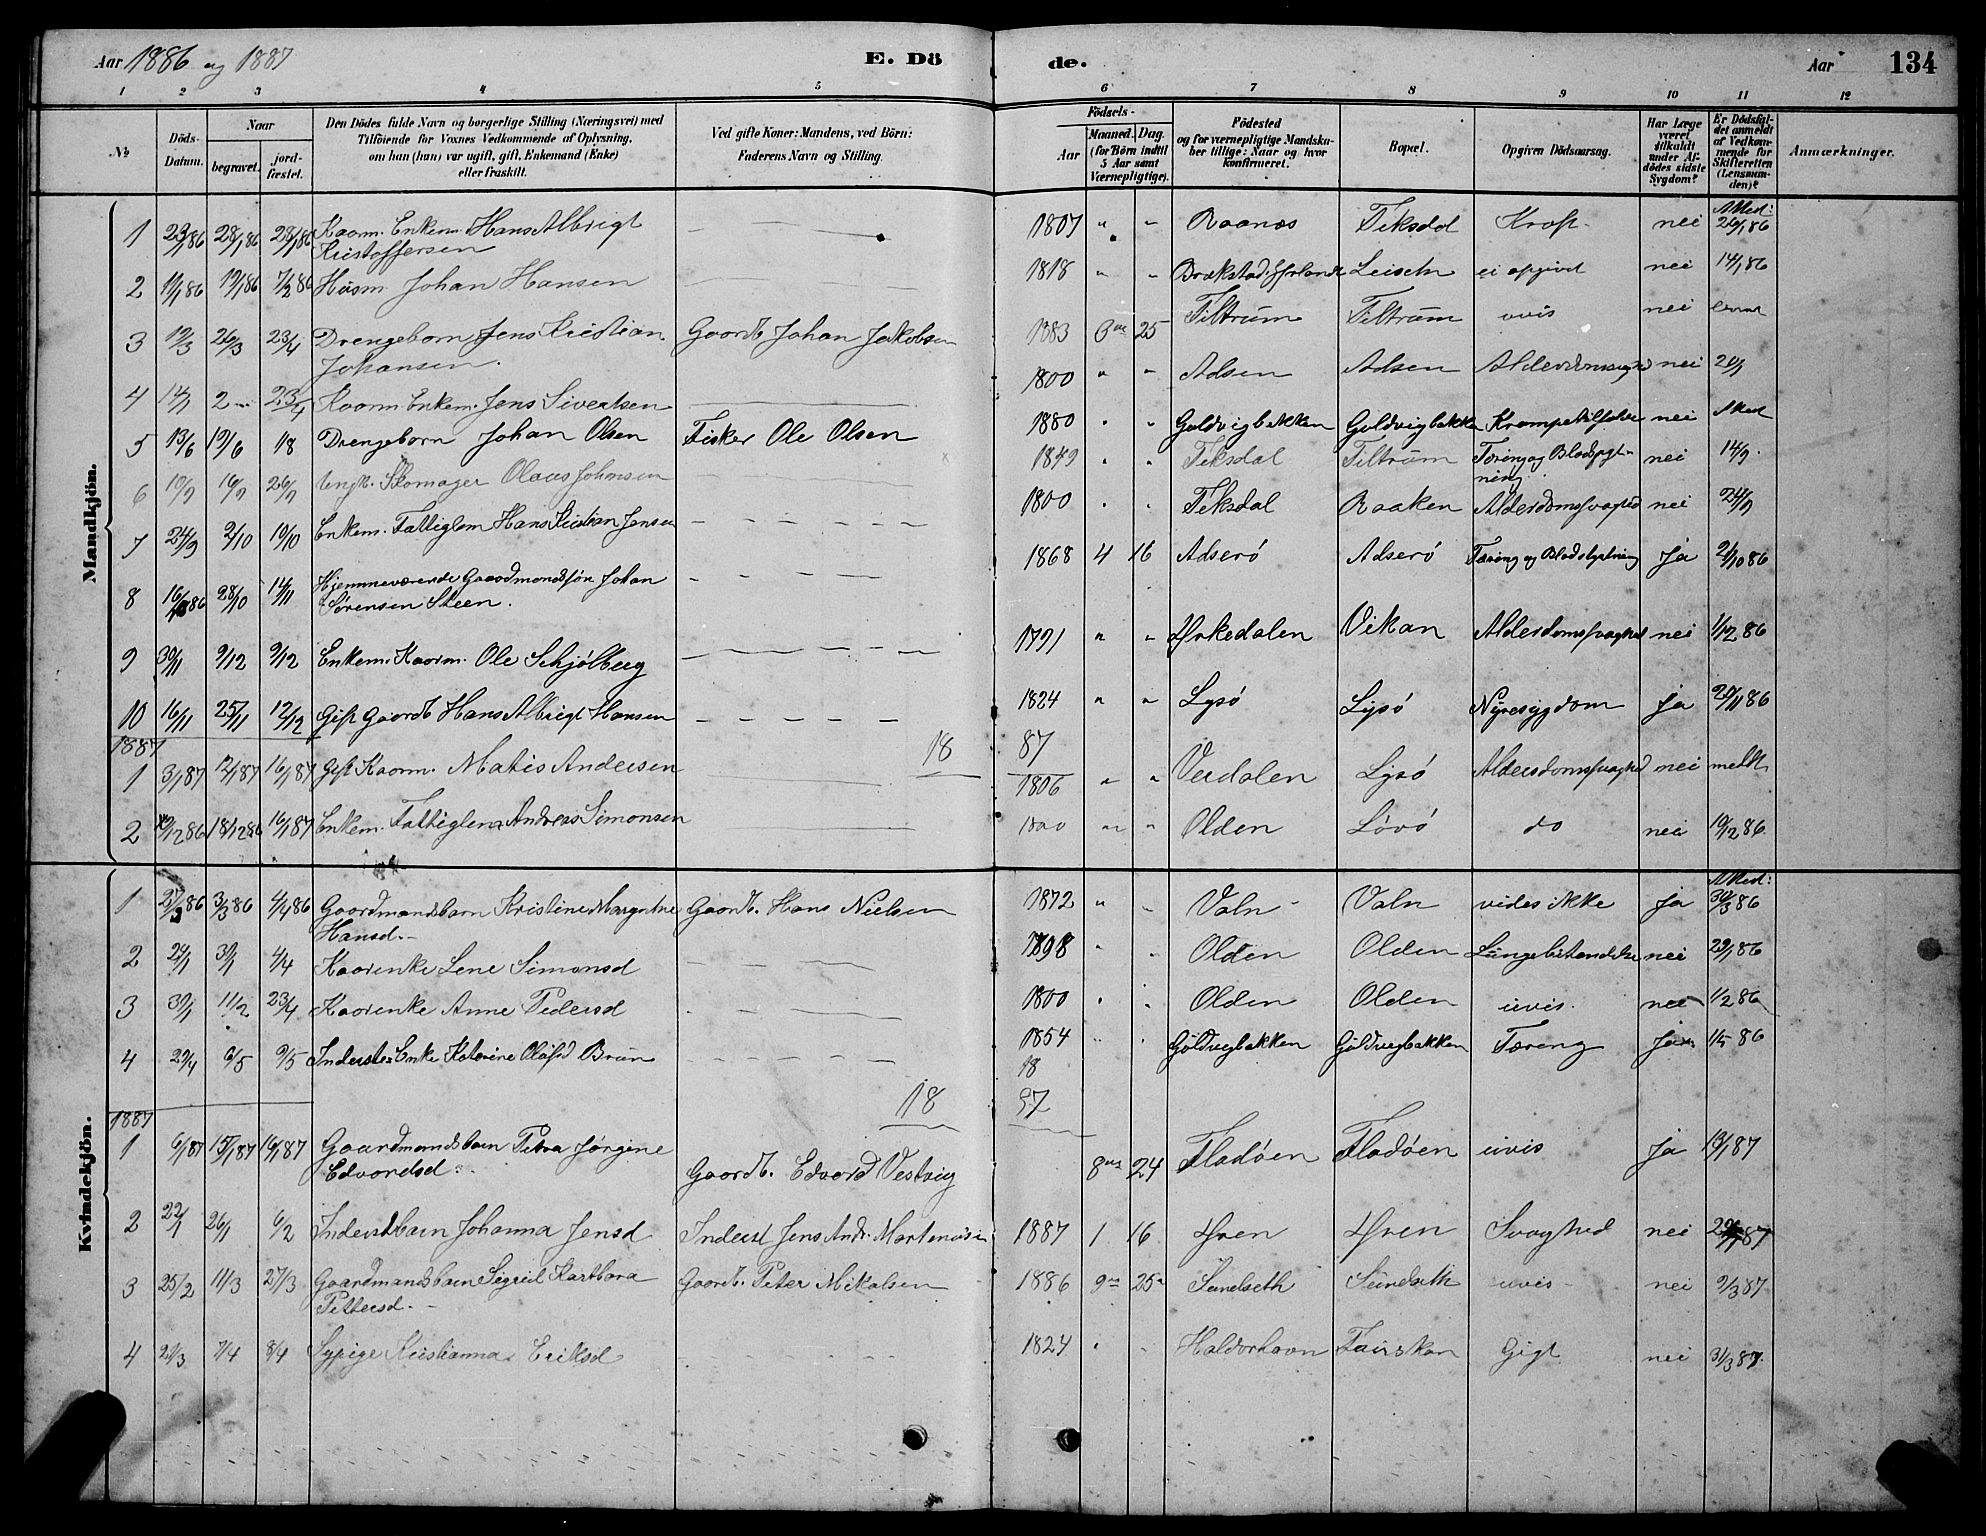 Aar 1886 og 1887
E. Dö
de.
Aar
134
1 2 3 4 5 6 7 8 9 10 11 12
No
Döds-Datum.
Naar
begravet.
jord-fæstet.
Den Dödes fulde Navn og borgerlige Stilling (Næringsvei) med
Tilföiende for Voxnes Vedkommende af Oplysning,
om han (hun) var ugift, gift, Enkemand (Enke)
eller fraskilt.
Ved gifte Koner: Mandens, ved Börn:
Faderens Navn og Stilling.
Födsels-
Aar
Maaned. Dag.
(for Börn indtil
5 Aar samt
Værnepligtige).
Födested
og for værnepligtige Mandska-
ber tillige: Naar og hvor
konfirmeret.
Bopæl.
Opgiven Dödsaarsag.
Har Læge
været
tilkaldt
under Af-
dödes sidste
Sygdom?
Er Dödsfal-
det anmeldt
af Vedkom-
mende for
Skifteretten
(Lensman-
den)?
Anmærkninger.
Mandkjön.
1 23/1 86 28/1 86 28/1 86 Kaarm. Enkem. Hans Albrigt Kristoffersen 1807 " " Raanæs Teksdal Kræft nei Med: 26/1 86
2 11/1 86 19/1 86 7/2 86 Husm. Johan Hansen 1818 " " Leiseth ei opgivet nei 14/1 86
3 12/3 26/3 23/4 Drengebarn Jens Kristian Johansen. Gaardb. Johan Jakobsen 1883 25 Tiltrum Tiltrum uvis nei
4 23/4 Kaarm. Enkem. Jens Sivertsen 1800 " " Adsen Adsen nei
5 13/6 19/6 1/8 Drengebarn Johan Olsen Fisker Ole Olsen 1880 " " Goldvigbakken Goldvigbakken nei
6 26/9 Ungk. Skomager Olaus Johnsen 1849 " " Teksdal Tiltrum nei 14/9
7 24/9 2/10 10/10 Enkem. Fattiglem Hans Kristian Jensen 1800 " " Teksdal Raaken Alderdomssvaghed nei 24/9
8 16/10 86 28/10 14/11 Hjemmeværende Gaardmandssön Johan Sörensen Steen. 1868 4 16 Adserö Adserö Tæring og Blodstyrtning Ja 21/10 86
9 30/11 9/12 9/12 Enkem. Kaarm. Ole Schjölberg 1791 " " Ørkedalen Vikan Alderdomssvaghed nei 1/12 86
10 16/11 25/11 12/12 Gift Gaardb. Hans Albrigt Hansen 1824 " " Lysö Lysö Nyresygdom Ja 20/11 86
1887
18 87
1 3/1 87 12/1 87 16/1 87 Gift Kaarm. Matis Andersen 1806 " " Verdalen Lysö Alderdomssvaghed nei meldt
2 10/12 86 18/12 86 16/1 87 Enkem. Fattiglem Andreas Simonsen 1800 " " Olden Lövö do nei 19/12 86
Kvindekjön.
1 3/3 86 4/4 86 Gaardmandsbarn Kristine Margrethe Hansd. Gaardb. Hans Nielsen 1872 " " Valn Valn vides ikke Ja Med: 30/3 86
2 4/4 Kaarenke Lene Simonsd Olden Olden Lungebetændelse nei 29/1 86
3 30/1 11/2 23/4 Kaarenke Anne Pedersd 1800 " " Olden Olden uvis. nei 1/2 86
4 29/4 6/5 9/5 Inderst Enke Katerine Olafsd Bruun 1854 " " Goldvigbakken Goldvigbakken Tæring Ja 1/5 86
1887
18
1 6/1 87 15/1 87 16/1 87 Gaardmandsbarn Petra Jörgine Edvardsd. Gaardb. Edvard Vestvig 8 24 Fladöen Fladöen uvis Ja 13/1 87
2 22/1 26/1 6/2 Inderstbarn Johanna Jensd Inderst Jens Andr. Martinusen 1887 1 16 Ören Ören Svaghed nei
3 25/2 11/3 27/3 Gaardmandsbarn Sigrid Karbara Pettersd. Gaardb. Peter Mikalsen 1886 9 25 Sundseth Sundseth uvis nei 9/3 87
4 7/4 8/4 Sypige Kristianna Eriksd 1824 " " Haldorhavn Gigt nei 31/3 87.